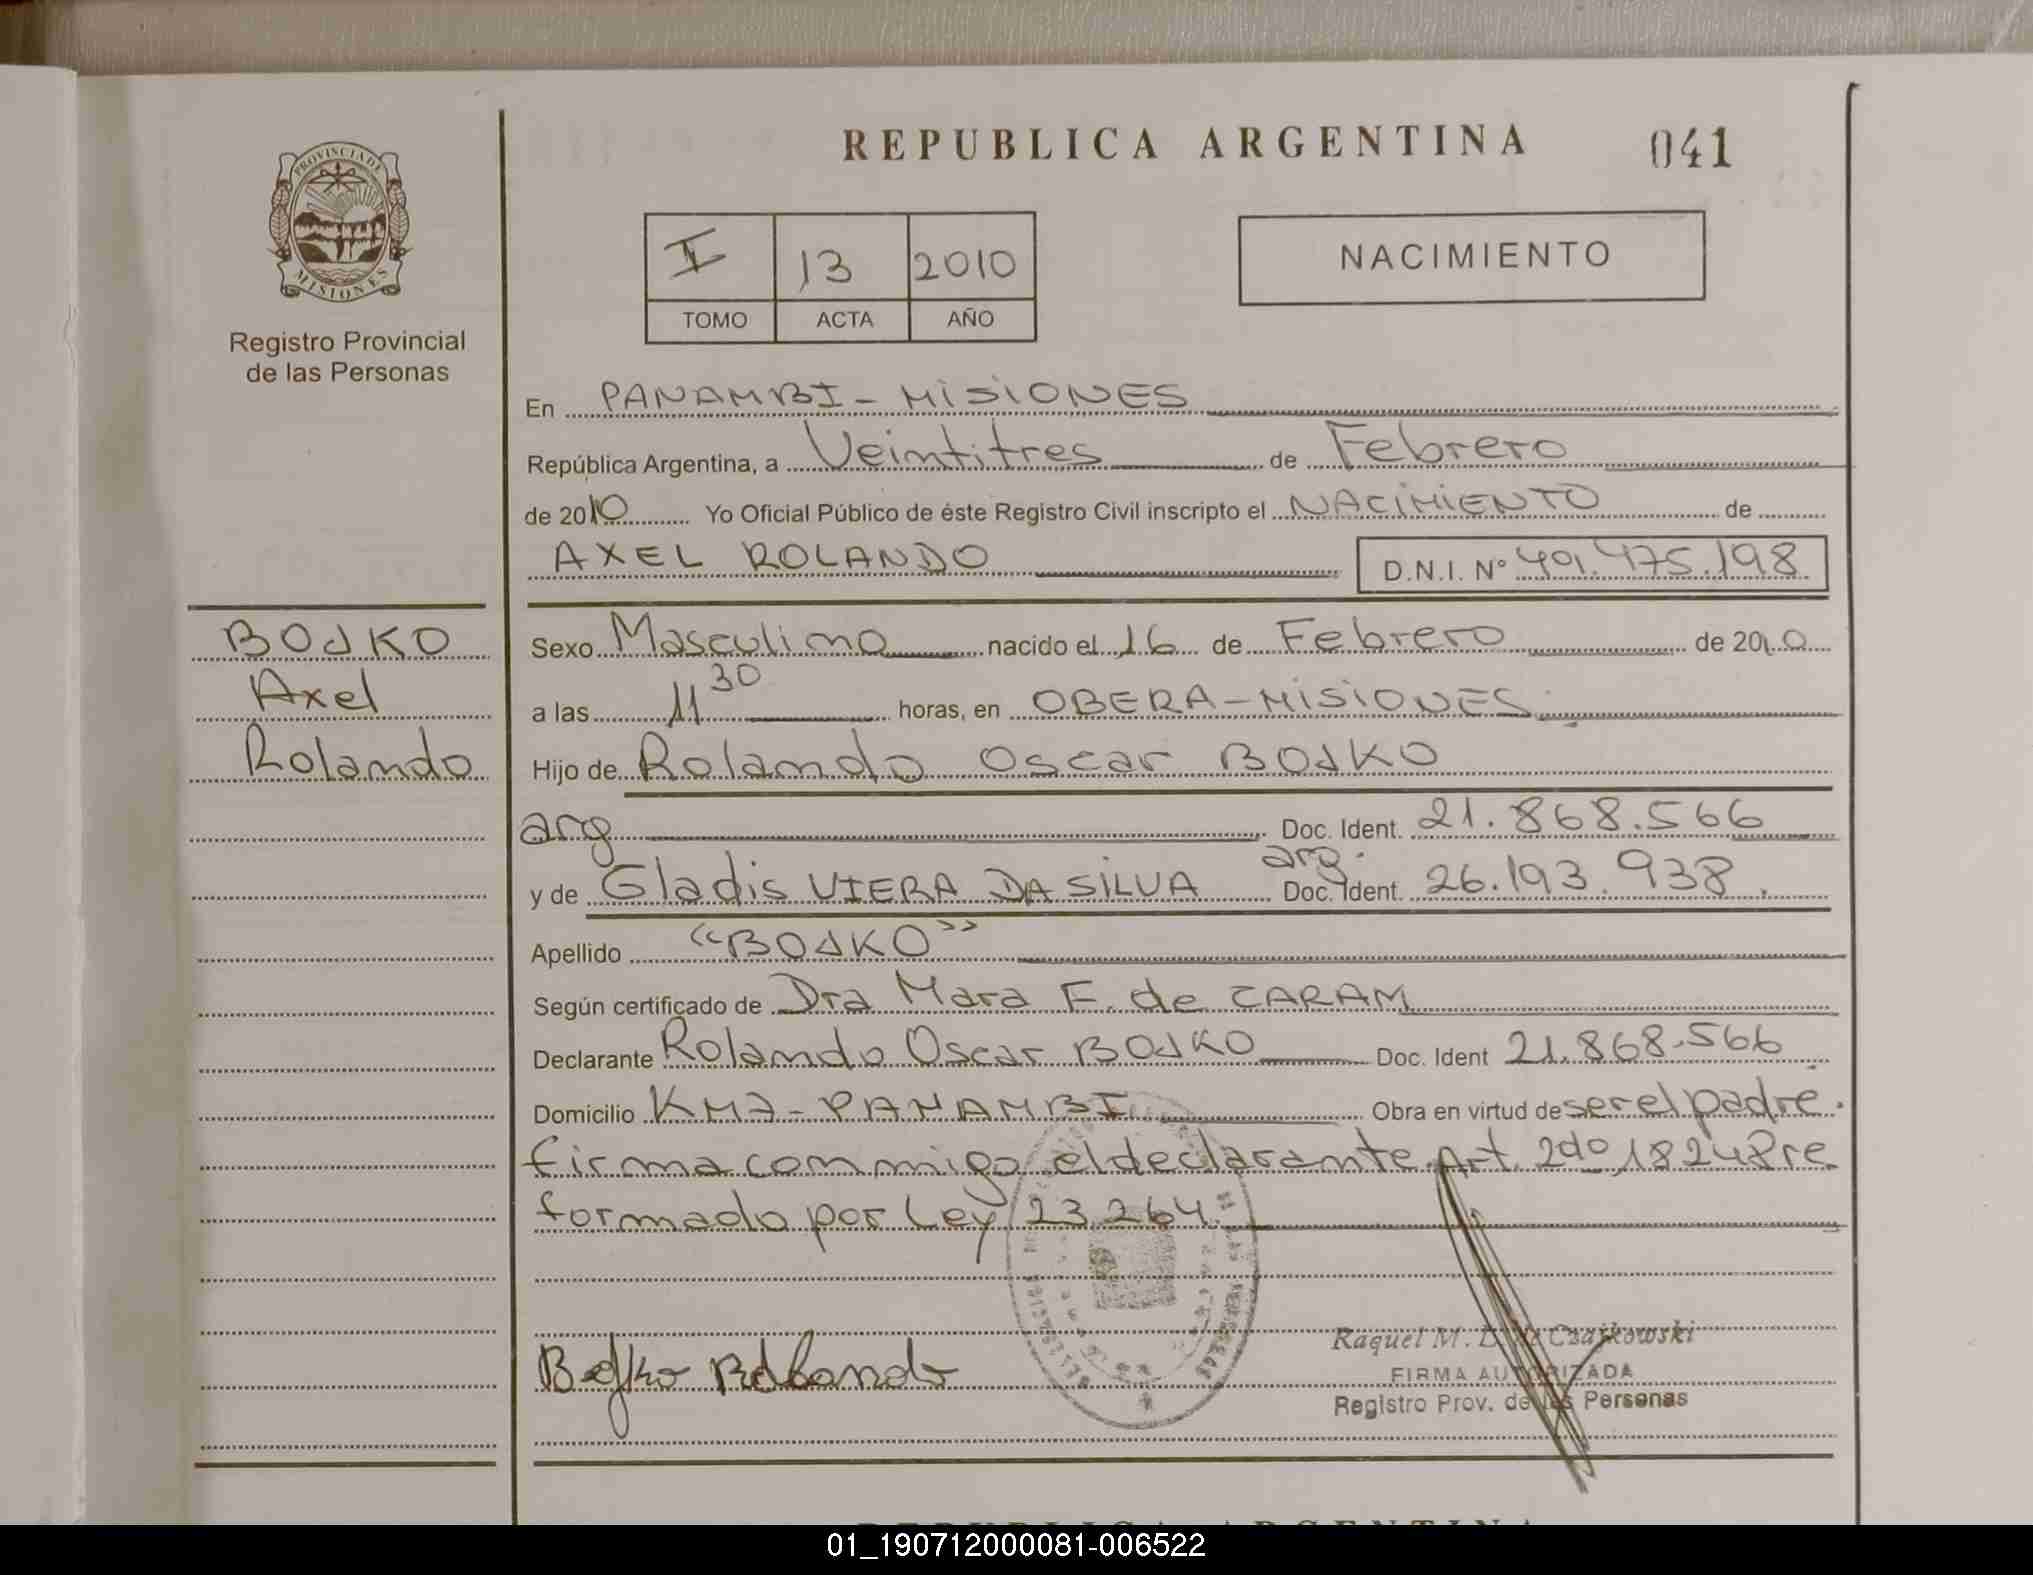 REPUBLICA ARGENTINA
041
PROVINCIA DE
MISIONES
Registro Provincial
de las Personas
I 13 2010
TOMO ACTA AÑO
NACIMIENTO
En PANAMBI - MISIONES
República Argentina, a Veintitres de Febrero
de 2010 Yo Oficial Público de éste Registro Civil inscripto el NACIMIENTO de
AXEL ROLANDO D.N.I. Nº 401.475.198
BOJKO
Axel
Rolando
Sexo Masculino nacido el 16 de Febrero de 2010
a las 11 30 horas, en OBERA - MISIONES
Hijo de Rolando Oscar BOJKO
arg Doc. Ident. 21.868.566
y de Gladis VIERA DA SILVA arg. Doc. Ident. 26.193.938.
Apellido "BOJKO"
Según certificado de Dra Mara F. de CARAM
Declarante Rolando Oscar BOJKO Doc. Ident 21.868.566
Domicilio KM7 - PANAMBI Obra en virtud de ser el padre.
firma conmigo el declarante. Art. 2do, 18248 re
formado por Ley 23.264.
Bojko Rolando
Raquel M. de Czajkowski
FIRMA AUTORIZADA
Registro Prov. de las Personas
REPUBLICA ARGENTINA
01_190712000081-006522